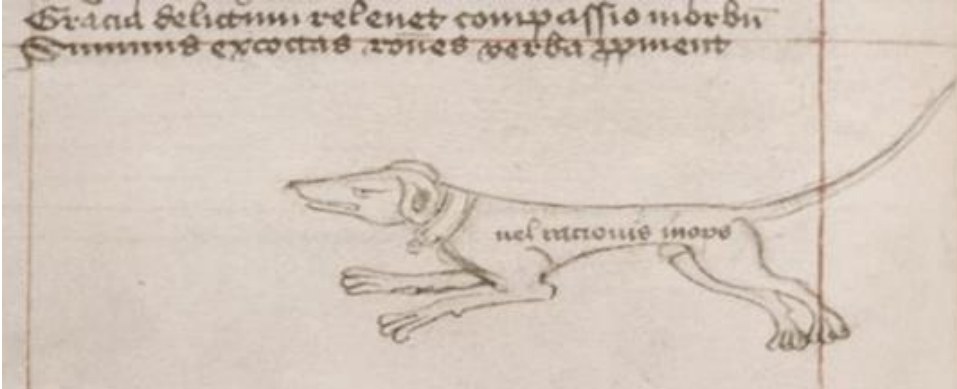 Gracia delictum relevet compassio morbū
Summus excoctas rōnes verba ꝓpment
uel racionis inops